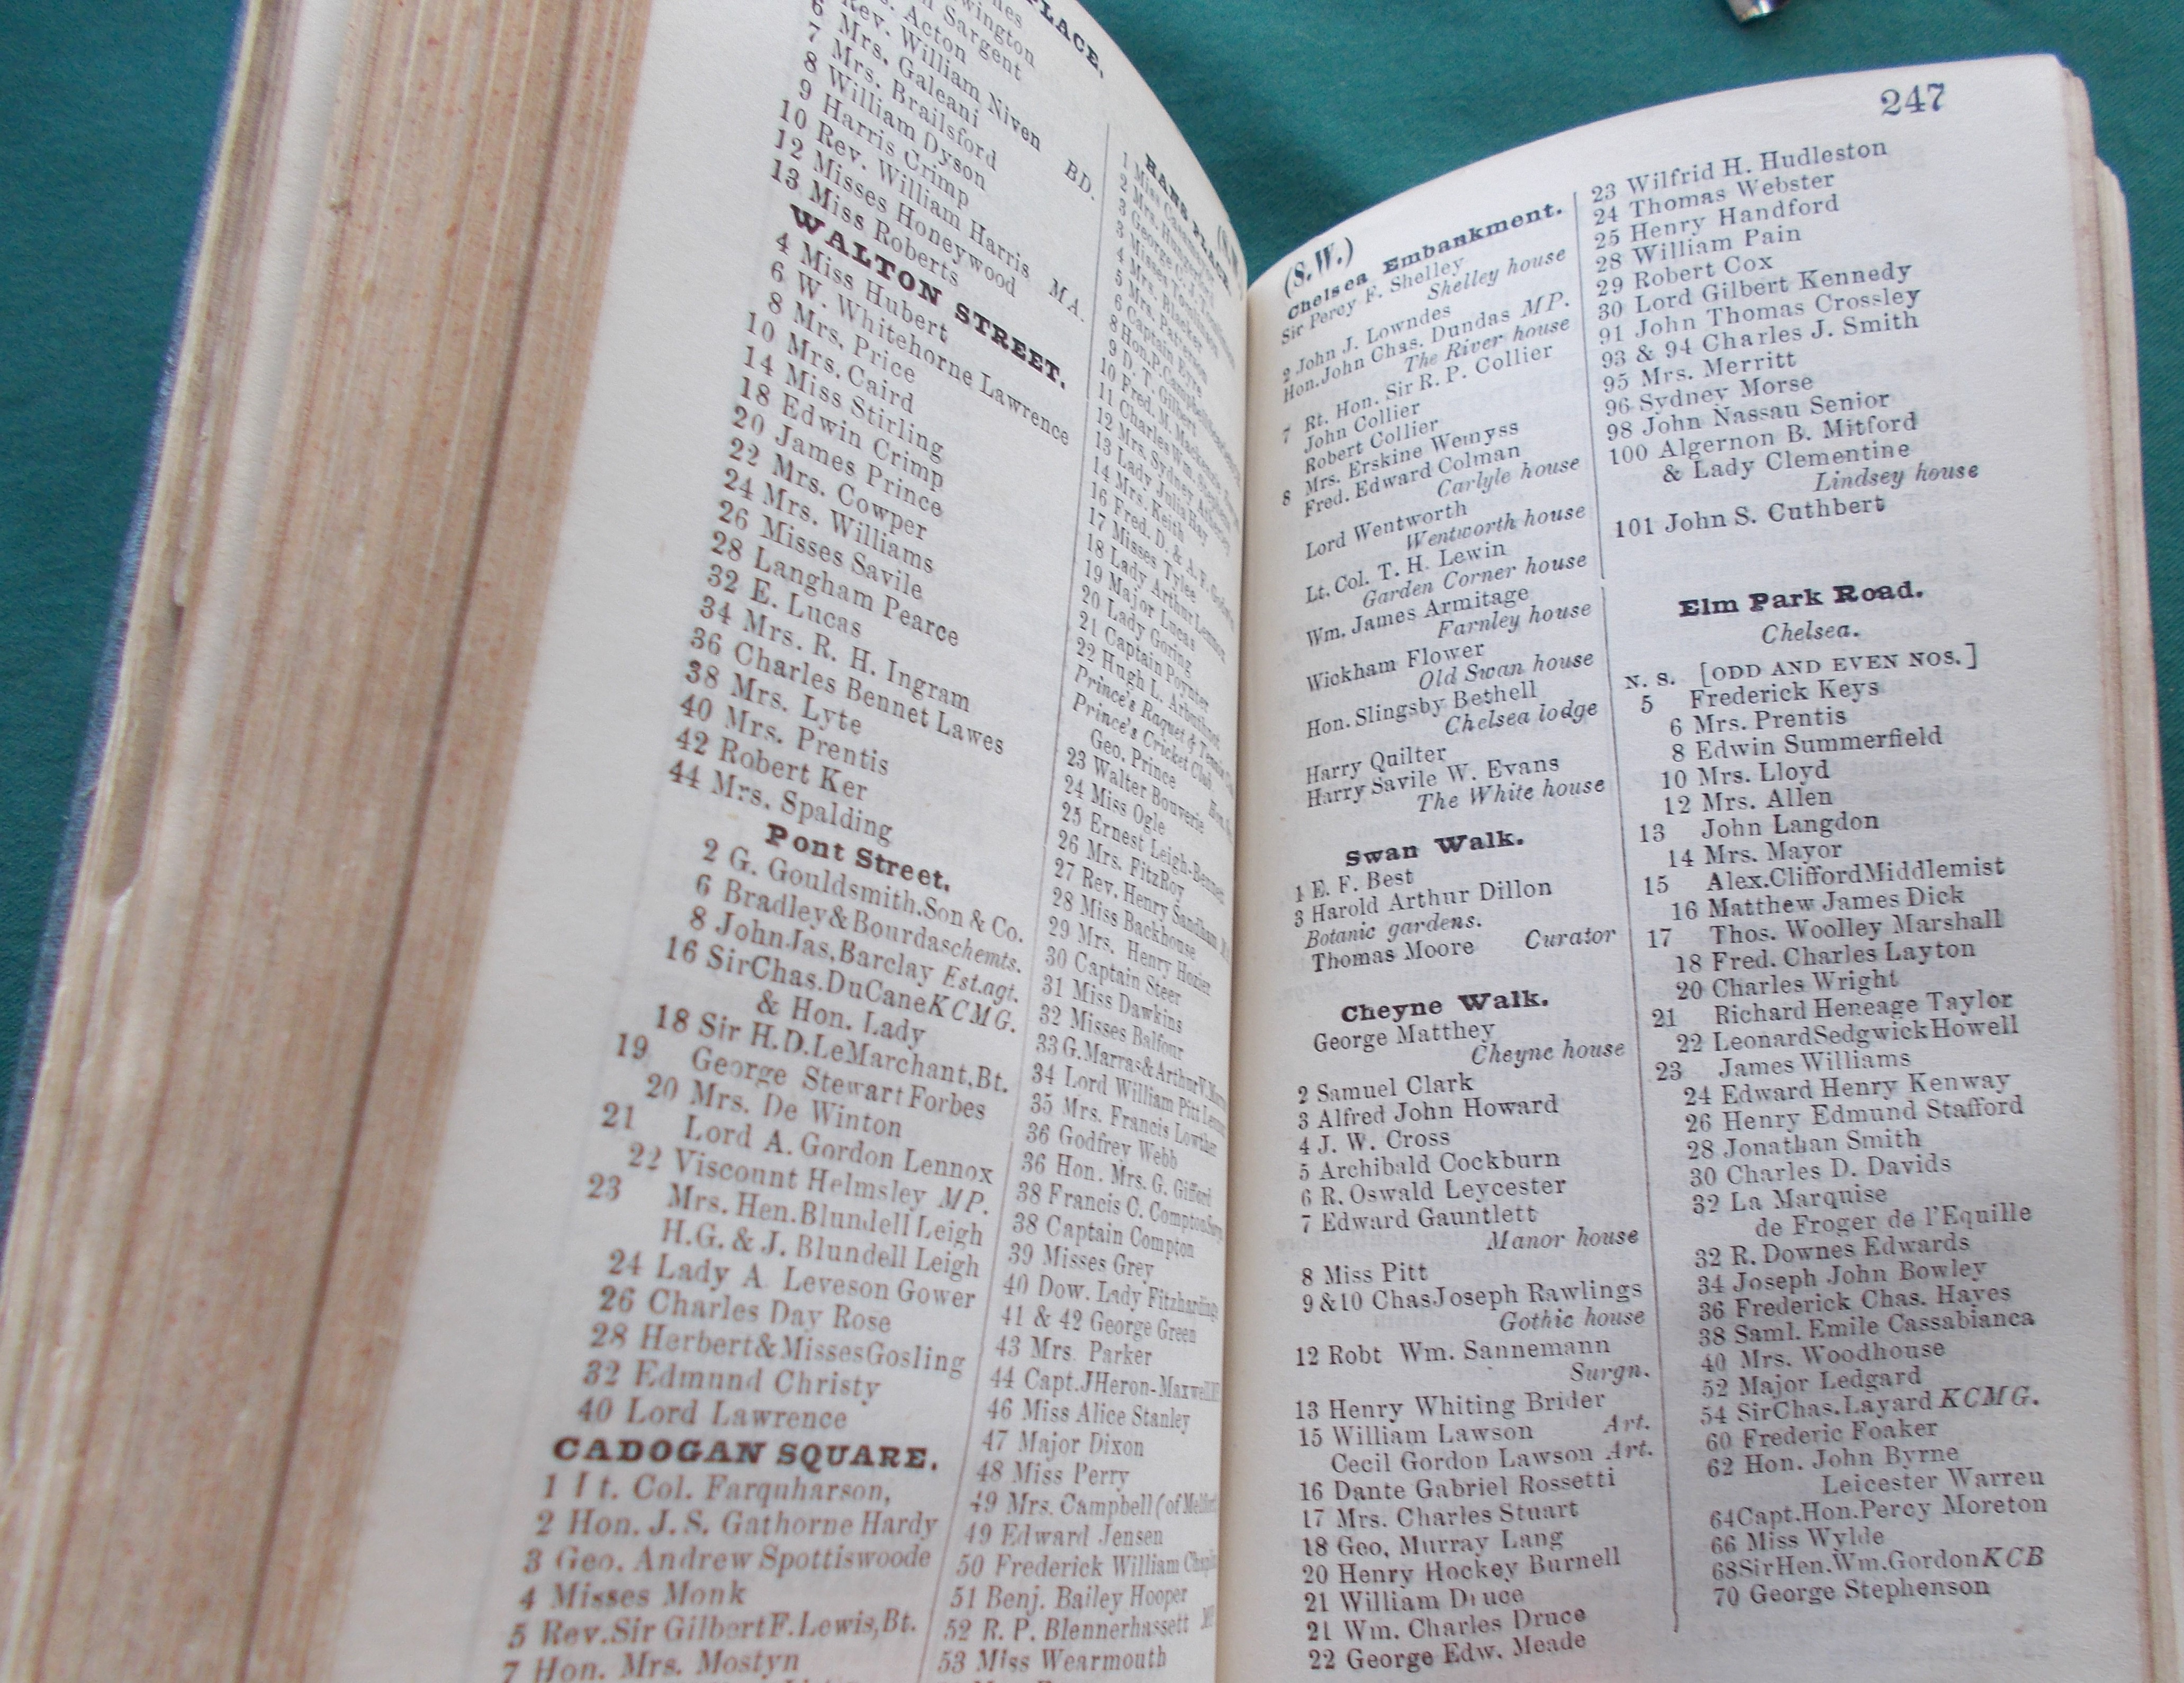 PLACE.
Sargent
Acton
6 Rev. William Niven BD.
7 Mrs. Galeani
8 Mrs. Brailsford
9 William Dyson
10 Harris Crimp
12 Rev. William Harris MA.
13 Misses Honeywood
Miss Roberts
WALTON STREET.
4 Miss Hubert
6 W. Whitehorne Lawrence
8 Mrs. Price
10 Mrs. Caird
14 Miss Stirling
18 Edwin Crimp
20 James Prince
22 Mrs. Cowper
24 Mrs. Williams
26 Misses Savile
28 Langham Pearce
32 E. Lucas
34 Mrs. R. H. Ingram
36 Charles Bennet Lawes
38 Mrs. Lyte
40 Mrs. Prentis
42 Robert Ker
44 Mrs. Spalding
Pont Street.
2 G. Gouldsmith.Son & Co.
6 Bradley&Bourdaschemts.
8 John.Jas.Barclay Est.agt.
16 SirChas.DuCaneKCMG.
& Hon. Lady
18 Sir H.D.LeMarchant,Bt.
19 George Stewart Forbes
20 Mrs. De Winton
21 Lord A. Gordon Lennox
22 Viscount Helmsley MP.
23 Mrs. Hen.Blundell Leigh
H.G. & J. Blundell Leigh
24 Lady A Leveson Gower
26 Charles Day Rose
28 Herbert&MissesGosling
32 Edmund Christy
40 Lord Lawrence
CADOGAN SQUARE.
1 Lt. Col. Farquharson,
2 Hon. J. S. Gathorne Hardy
3 Geo. Andrew Spottiswoode
4 Misses Monk
5 Rev.Sir GilbertF.Lewis,Bt.
7 Hon. Mrs. Mostyn
HANS PLACE
5 Mrs. Patterson
6 Captain Eyre
9 D. T. Gilbert
10 Fred. M.
11 Charles Wm.
12 Mrs. Sydney
13 Lady Julia Hay
14 Mrs. Keith
16 Fred. D. & A. F.
17 Misses Tylee
18 Lady Arthur Lennox
19 Major Lucas
20 Lady Goring
21 Captain Poynter
22 Hugh L. Arbuthnot
Prince's Raquet & Tennis
Prince's Cricket Club
Geo. Prince
23 Walter Bouverie
24 Miss Ogle
25 Ernest Leigh-Bennett
26 Mrs. FitzRoy
27 Rev. Henry Sandham
28 Miss Backhouse
29 Mrs. Henry Hozier
30 Captain Steer
31 Miss Dawkins
32 Misses Balfour
33 G.Marras&ArthurV.
34 Lord William Pitt
35 Mrs. Francis Lowther
36 Godfrey Webb
36 Hon. Mrs. G. Gifford
38 Francis C. Compton
38 Captain Compton
39 Misses Grey
40 Dow. Lady Fitzhardinge
41 & 42 George Green
43 Mrs. Parker
44 Capt.JHeron-Maxwell
46 Miss Alice Stanley
47 Major Dixon
48 Miss Perry
49 Mrs. Campbell (of
49 Edward Jensen
50 Frederick William
51 Benj. Bailey Hooper
52 R. P. Blennerhassett
53 Miss Wearmouth
247
(S.W.)
Chelsea Embankment.
Sir Percy F. Shelley
Shelley house
2 John J. Lowndes
Hon.John Chas. Dundas MP.
The River house
7 Rt. Hon. Sir R. P. Collier
John Collier
Robert Collier
8 Mrs. Erskine Wemyss
Fred. Edward Colman
Carlyle house
Lord Wentworth
Wentworth house
Lt. Col. T. H. Lewin
Garden Corner house
Wm. James Armitage
Farnley house
Wickham Flower
Old Swan house
Hon. Slingsby Bethell
Chelsea lodge
Harry Quilter
Harry Savile W. Evans
The White house
Swan Walk.
1 E. F. Best
3 Harold Arthur Dillon
Botanic gardens.
Thomas Moore Curator
Cheyne Walk.
George Matthey
Cheyne house
2 Samuel Clark
3 Alfred John Howard
4 J. W. Cross
5 Archibald Cockburn
6 R. Oswald Leycester
7 Edward Gauntlett
Manor house
8 Miss Pitt
9 &10 ChasJoseph Rawlings
Gothic house
12 Robt Wm. Sannemann
Surgn.
13 Henry Whiting Brider
15 William Lawson Art.
Cecil Gordon Lawson Art.
16 Dante Gabriel Rossetti
17 Mrs. Charles Stuart
18 Geo. Murray Lang
20 Henry Hockey Burnell
21 William Druce
21 Wm. Charles Druce
22 George Edw. Meade
23 Wilfrid H. Hudleston
24 Thomas Webster
25 Henry Handford
28 William Pain
29 Robert Cox
30 Lord Gilbert Kennedy
91 John Thomas Crossley
93 & 94 Charles J. Smith
95 Mrs. Merritt
96 Sydney Morse
98 John Nassau Senior
100 Algernon B. Mitford
& Lady Clementine
Lindsey house
101 John S. Cuthbert
Elm Park Road.
Chelsea.
N. S. [ODD AND EVEN NOS.]
5 Frederick Keys
6 Mrs. Prentis
8 Edwin Summerfield
10 Mrs. Lloyd
12 Mrs. Allen
13 John Langdon
14 Mrs. Mayor
15 Alex.CliffordMiddlemist
16 Matthew James Dick
17 Thos. Woolley Marshall
18 Fred. Charles Layton
20 Charles Wright
21 Richard Heneage Taylor
22 LeonardSedgwickHowell
23 James Williams
24 Edward Henry Kenway
26 Henry Edmund Stafford
28 Jonathan Smith
30 Charles D. Davids
32 La Marquise
de Froger de l'Equille
32 R. Downes Edwards
34 Joseph John Bowley
36 Frederick Chas. Hayes
38 Saml. Emile Cassabianca
40 Mrs. Woodhouse
52 Major Ledgard
54 SirChas.Layard KCMG.
60 Frederic Foaker
62 Hon. John Byrne
Leicester Warren
64Capt.Hon.Percy Moreton
66 Miss Wylde
68SirHen.Wm.GordonKCB
70 George Stephenson